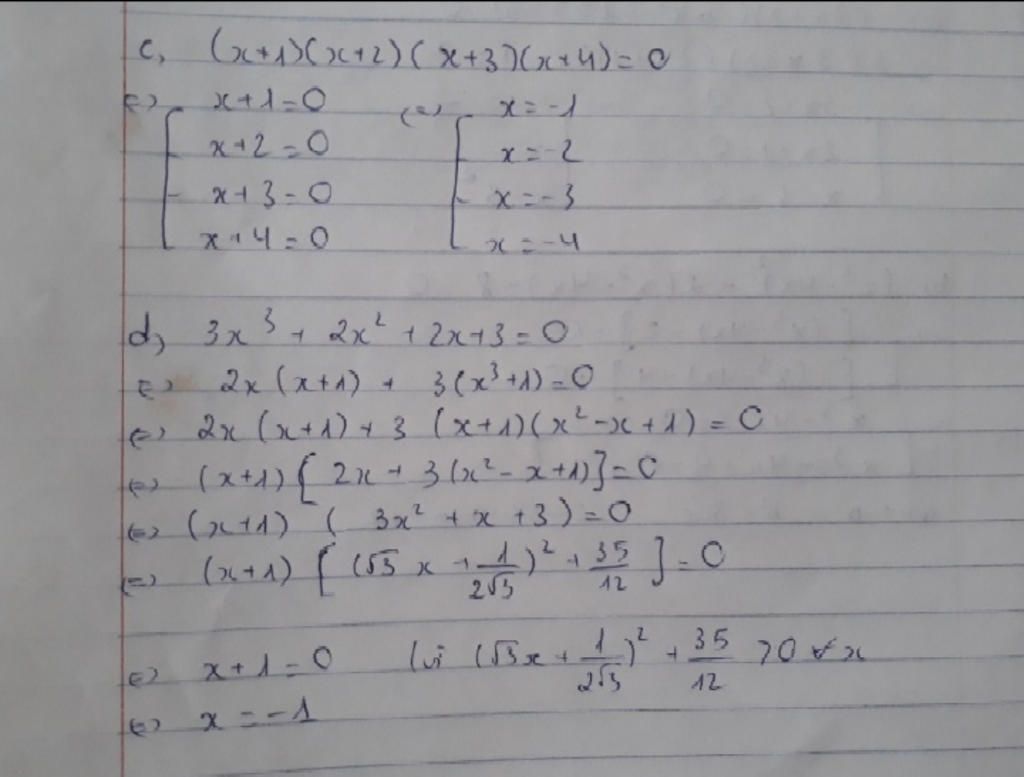 c, (x+1)(x+2)(x+3)(x+4)=0
<=> [ x+1=0 <=> [ x=-1
x+2=0 x=-2
x+3=0 x=-3
x+4=0 x=-4
d, 3x³ + 2x² + 2x+3=0
<=> 2x(x+1) + 3(x³+1)=0
<=> 2x(x+1)+3 (x+1)(x²-x+1)=0
<=> (x+1)[2x+3(x²-x+1)]=0
<=> (x+1) (3x²+x+3)=0
<=> (x+1) [(√3x + 1/2√3)² + 35/12]=0
<=> x+1=0 (vì (√3x + 1/2√3)² + 35/12 >0 ∀x
<=> x=-1